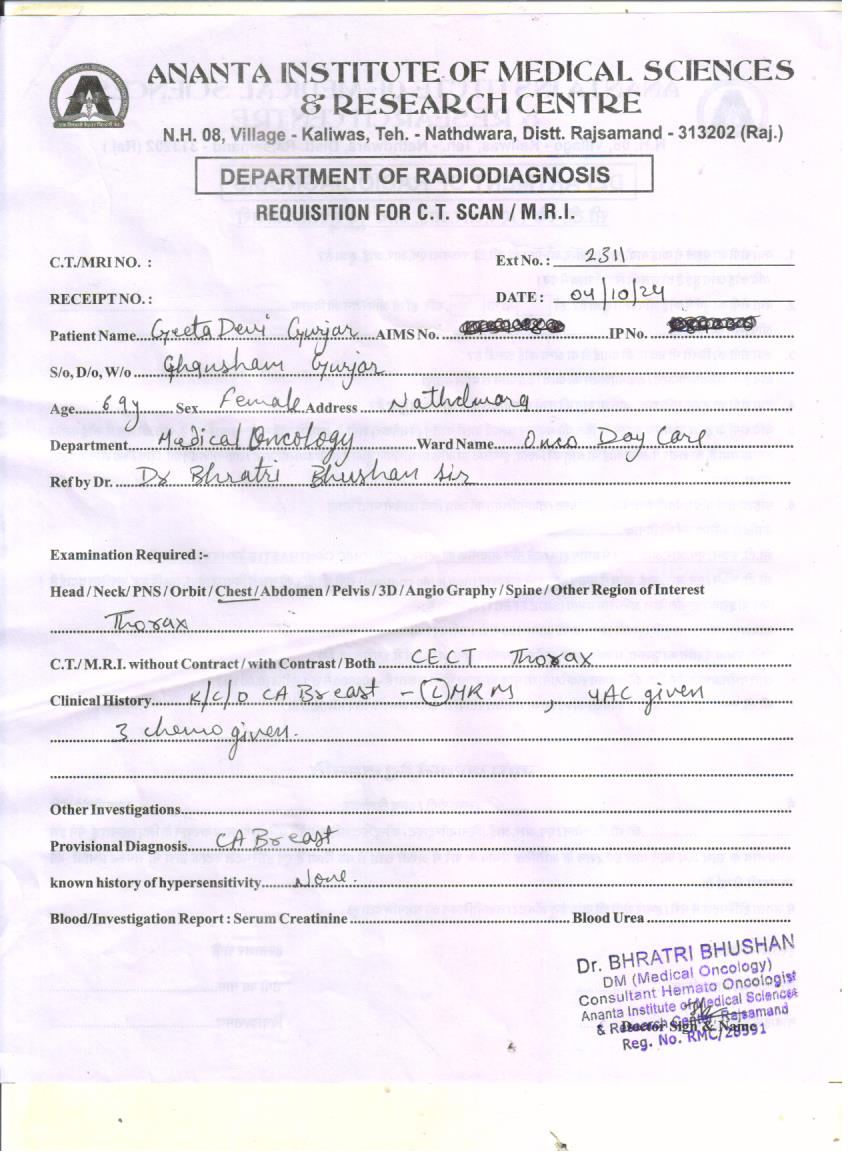 ANANTA INSTITUTE OF MEDICAL SCIENCES
& RESEARCH CENTRE
N.H. 08, Village - Kaliwas, Teh. - Nathdwara, Distt. Rajsamand - 313202 (Raj.)
DEPARTMENT OF RADIODIAGNOSIS
REQUISITION FOR C.T. SCAN / M.R.I.
C.T./MRI NO. : Ext No. : 2311
RECEIPT NO. : DATE : 04/10/24
Patient Name Geeta Devi Gurjar AIMS No. IP No.
S/o, D/o, W/o Ghanusham Gurjar
Age 69y Sex Female Address Nathdwara
Department Medical Oncology Ward Name Onco Day Care
Ref by Dr. Dr Bhratri Bhushan Sir
Examination Required :-
Head / Neck / PNS / Orbit / Chest / Abdomen / Pelvis / 3D / Angio Graphy / Spine / Other Region of Interest
Thorax
C.T./ M.R.I. without Contract / with Contrast / Both CECT Thorax
Clinical History K/C/O CA Breast - (L) MRM , 4AC given
3 chemo given.
Other Investigations
Provisional Diagnosis CA Breast
known history of hypersensitivity None.
Blood/Investigation Report : Serum Creatinine Blood Urea
Dr. BHRATRI BHUSHAN
DM (Medical Oncology)
Consultant Hemato Oncologist
Ananta Institute of Medical Sciences
& Research Centre, Rajsamand
Doctor Sign & Name
Reg. No. RMC/28591